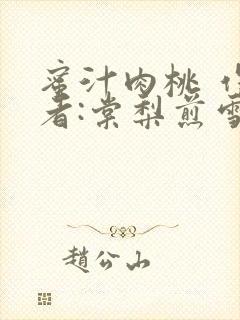 蜜汁肉桃 作
者:棠梨煎雪
趙公山